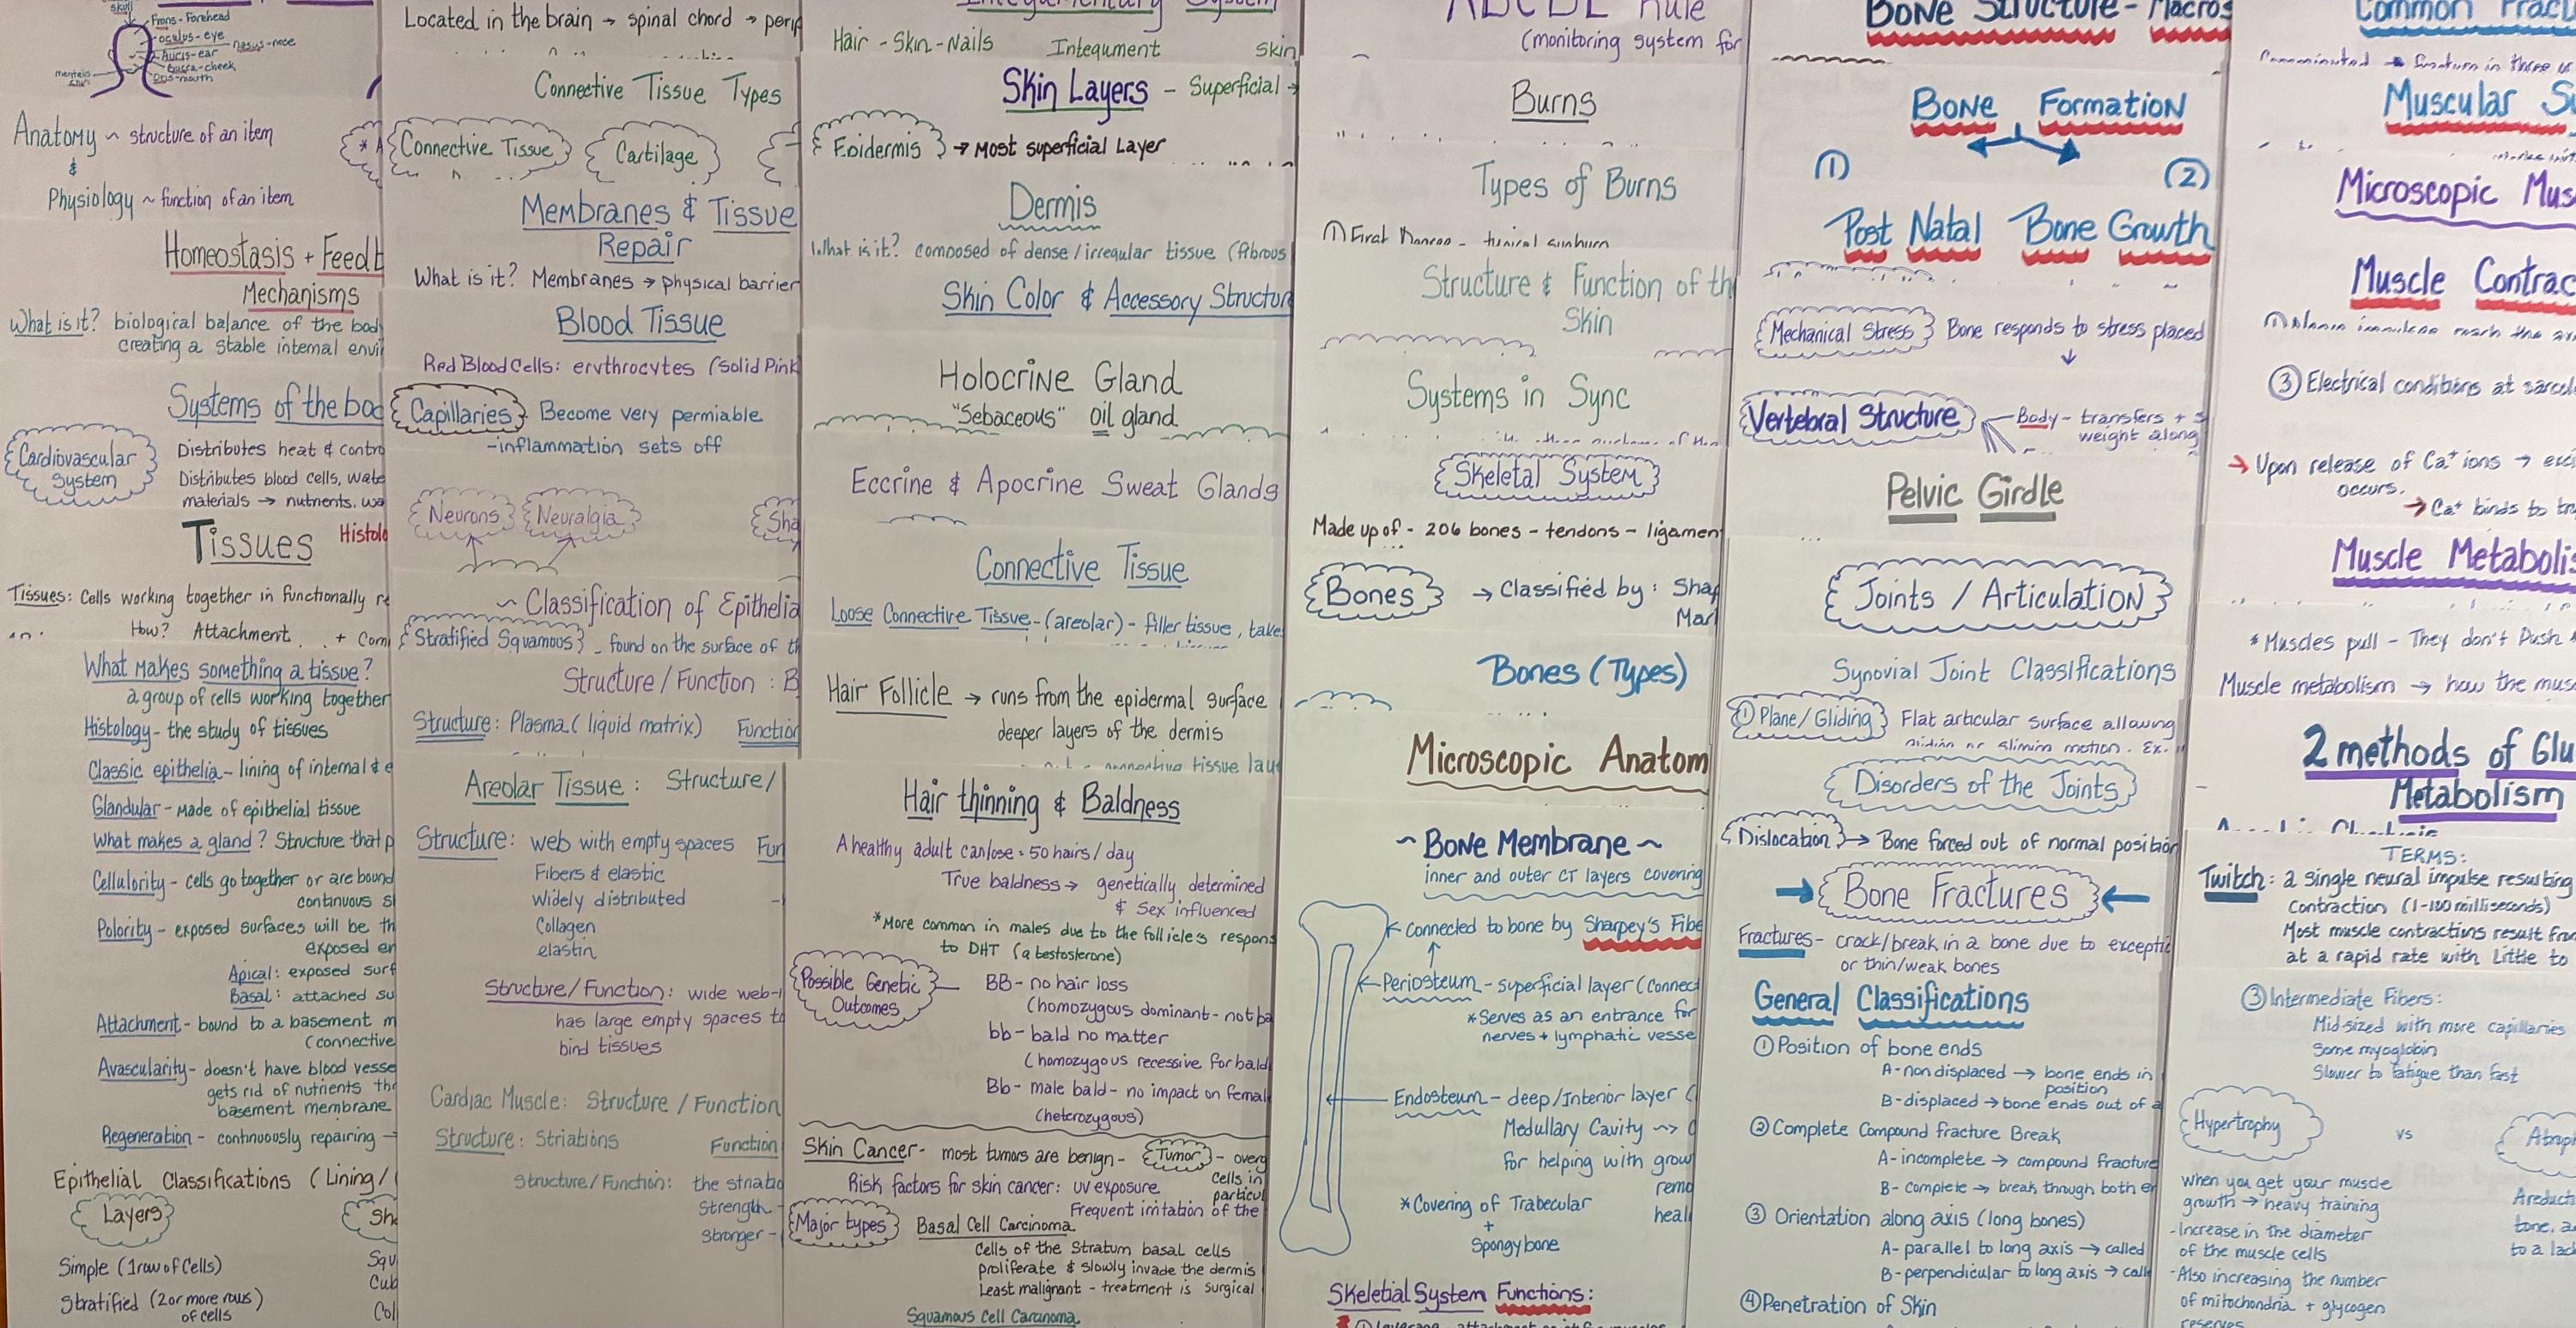 skull
Frons - Forehead
oculus - eye
nasus - nose
Auris - ear
Bucca - cheek
mentalis
chin
Oris - mouth
Anatomy ~ structure of an item
&
Physiology ~ function of an item
Homeostasis + Feedb
Mechanisms
What is it? biological balance of the body
creating a stable internal envi
Systems of the bod
Cardiovascular
System
Distributes heat & contro
Distributes blood cells, wate
materials → nutrients, wa
Tissues
Histolo
Tissues: Cells working together in functionally re
How? Attachment + Com
What makes something a tissue?
a group of cells working together
Histology - the study of tissues
Classic epithelia - lining of internal & e
Glandular - Made of epithelial tissue
What makes a gland? Structure that p
Cellulority - cells go together or are bound
continuous s
Polority - exposed surfaces will be th
exposed en
Apical: exposed surf
Basal: attached su
Attachment - bound to a basement m
(connective
Avascularity - doesn't have blood vesse
gets rid of nutrients th
basement membrane
Regeneration - continuously repairing →
Epithelial Classifications (Lining/
Layers
Sh
Simple (1 row of Cells)
Squ
Cub
Stratified (2 or more rows)
of cells
Col
Located in the brain → spinal chord → perip
Connective Tissue Types
Connective Tissue
Cartilage
Membranes & Tissue
Repair
What is it? Membranes → physical barrier
Blood Tissue
Red Blood Cells: erythrocytes (Solid Pink
Capillaries Become very permiable
-inflammation sets off
Neurons Neuralgia Sha
~ Classification of Epithelia
Stratified Squamous - found on the surface of th
Structure / Function : B
Structure: Plasma (liquid matrix) Function
Areolar Tissue : Structure /
Structure: web with empty spaces Fun
Fibers & elastic
Widely distributed
Collagen
elastin
Structure/Function: wide web-
has large empty spaces to
bind tissues
Cardiac Muscle: Structure / Function
Structure: Striations Function
Structure/Function: the striatio
Strength -
Stronger -
Integumentary System
Hair - Skin - Nails Integument Skin
Skin Layers - Superficial →
Epidermis → Most superficial Layer
Dermis
What is it? composed of dense / irregular tissue (fibrous
Skin Color & Accessory Structur
Holocrine Gland
"Sebaceous" oil gland
Eccrine & Apocrine Sweat Glands
Connective Tissue
Loose Connective Tissue - (areolar) - filler tissue, take
Hair Follicle → runs from the epidermal surface
deeper layers of the dermis
connective tissue lay
Hair thinning & Baldness
A healthy adult can lose = 50 hairs / day
True baldness → genetically determined
& Sex influenced
*More common in males due to the follicle's respon
to DHT (a testosterone)
Possible Genetic
Outcomes
BB - no hair loss
(homozygous dominant - not ba
bb - bald no matter
(homozygous recessive for bald
Bb - male bald - no impact on femal
(heterozygous)
Skin Cancer - most tumors are benign - Tumor - overg
cells in
particul
Risk factors for skin cancer: UV exposure
Frequent irritation of the
Major types
Basal Cell Carcinoma
Cells of the Stratum basal cells
proliferate & slowly invade the dermis
Least malignant - treatment is surgical
Squamous Cell Carcinoma
ABCDE Rule
(monitoring system for
Burns
Types of Burns
① First Degree - typical sunburn
Structure & Function of th
Skin
Systems in Sync
Skeletal System
Made up of - 206 bones - tendons - ligamen
Bones → Classified by : Shap
Mar
Bones (Types)
Microscopic Anatom
~ Bone Membrane ~
inner and outer CT layers covering
Connected to bone by Sharpey's Fibe
Periosteum - superficial layer (connect
*Serves as an entrance for
nerves + lymphatic vesse
Endosteum - deep/Interior layer (
Medullary Cavity ~> 
for helping with grow
remo
heal
*Covering of Trabecular
+
Spongy bone
Skeletial System Functions:
Bone Structure - Macros
Bone Formation
① ②
Post Natal Bone Growth
Mechanical Stress Bone responds to stress placed
Vertebral Structure
Body - transfers + s
weight along
Pelvic Girdle
Joints / Articulation
Synovial Joint Classifications
① Plane/Gliding Flat articular surface allowing
gliding or sliming motion. Ex.
Disorders of the Joints
Dislocation → Bone forced out of normal position
Bone Fractures
Fractures - crack/break in a bone due to excepti
or thin/weak bones
General Classifications
① Position of bone ends
A - non displaced → bone ends in
position
B - displaced → bone ends out of a
② Complete Compound fracture Break
A - incomplete → compound fracture
B - complete → break through both en
③ Orientation along axis (long bones)
A - parallel to long axis → called
B - perpendicular to long axis → calle
④ Penetration of Skin
Common Fractu
Comminuted → fracture in three or
Muscular S
Microscopic Mus
Muscle Contrac
③ Electrical conditions at sarcol
→ Upon release of Ca⁺ ions → exci
occurs.
→ Ca⁺ binds to tro
Muscle Metabolis
*Muscles pull - They don't Push
Muscle metabolism → how the mus
2 methods of Glu
Metabolism
TERMS:
Twitch: a single neural impulse resulting
contraction (1-100 milliseconds)
Most muscle contractions result from
at a rapid rate with little to
③ Intermediate Fibers:
Mid-sized with more capillaries
Some myoglobin
Slower to fatigue than fast
Hypertrophy vs Atrop
when you get your muscle
growth → heavy training
-Increase in the diameter
of the muscle cells
-Also increasing the number
of mitochondria + glycogen
reserves
A reduct
tone, a
to a lack